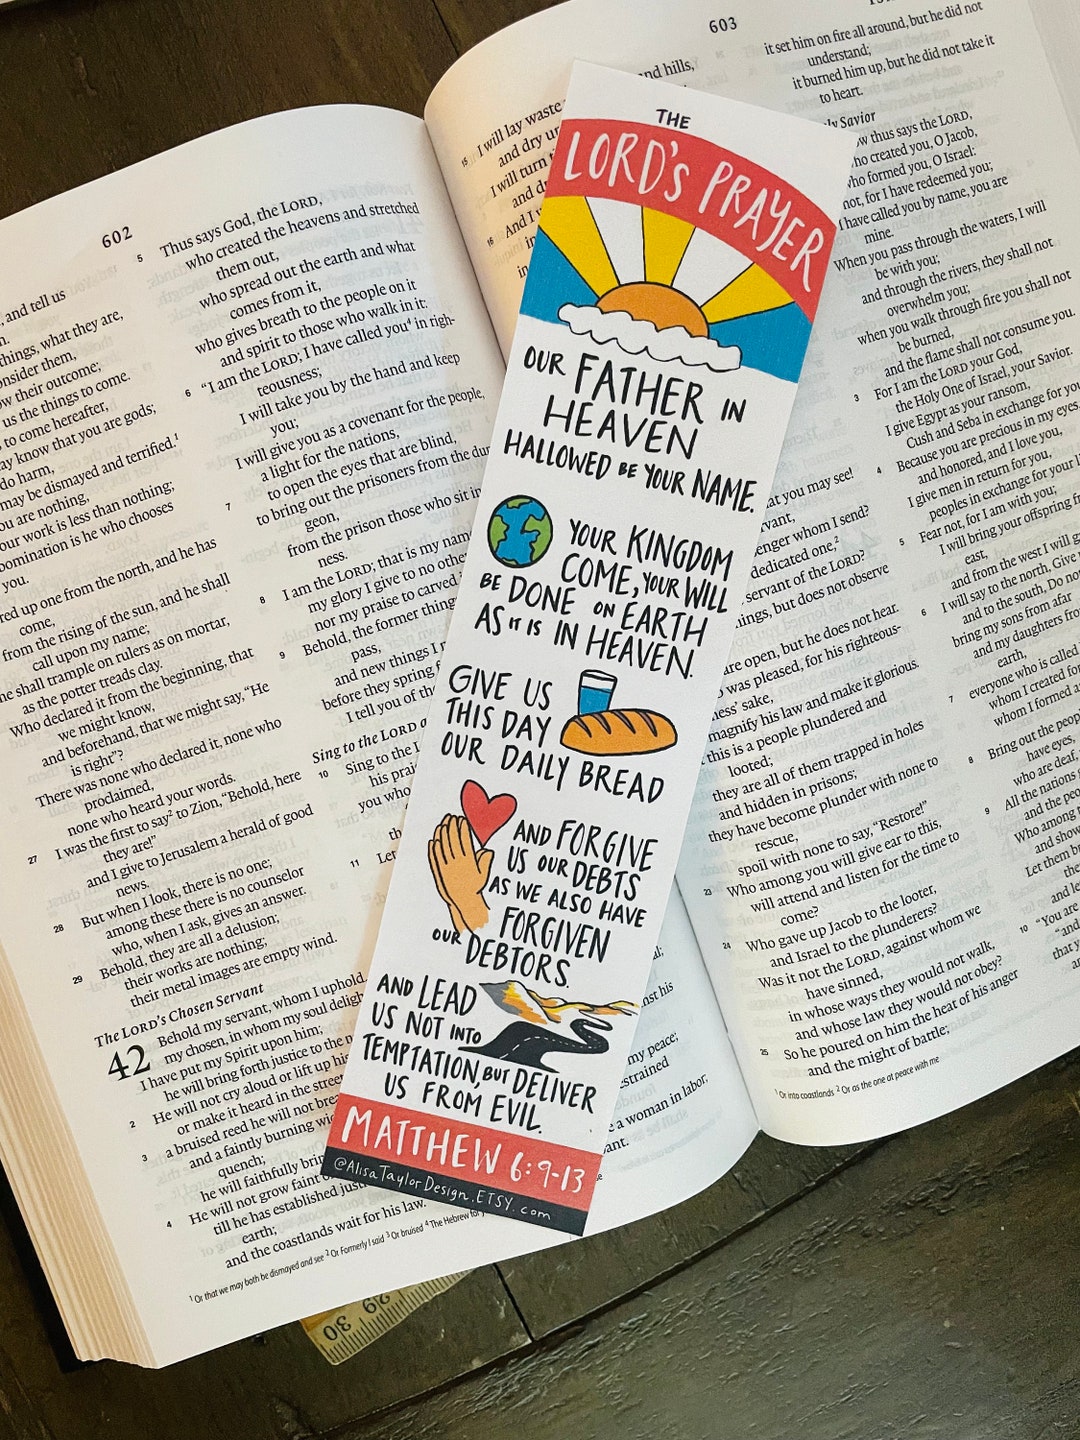 602
, and tell us
things, what they are,
onsider them,
ow their outcome;
us the things to come.
to come hereafter,
ay know that you are gods;
do harm,
may be dismayed and terrified.1
ou are nothing,
our work is less than nothing;
omination is he who chooses
you.
red up one from the north, and he has
come,
from the rising of the sun, and he shall
call upon my name;
he shall trample on rulers as on mortar,
as the potter treads clay.
Who declared it from the beginning, that
we might know,
and beforehand, that we might say, “He
is right”?
There was none who declared it, none who
proclaimed,
none who heard your words.
27 I was the first to say2 to Zion, “Behold, here
they are!”
and I give to Jerusalem a herald of good
news.
28 But when I look, there is no one;
among these there is no counselor
who, when I ask, gives an answer.
29 Behold, they are all a delusion;
their works are nothing;
their metal images are empty wind.
The LORD’s Chosen Servant
42 Behold my servant, whom I uphold,
my chosen, in whom my soul deligh
I have put my Spirit upon him;
he will bring forth justice to the n
2 He will not cry aloud or lift up his
or make it heard in the street
3 a bruised reed he will not brea
and a faintly burning wic
quench;
he will faithfully brin
4 He will not grow faint o
till he has established just
earth;
and the coastlands wait for his law.
1 Or that we may both be dismayed and see 2 Or Formerly I said 3 Or bruised 4 The Hebrew for
5 Thus says God, the LORD,
who created the heavens and stretched
them out,
who spread out the earth and what
comes from it,
who gives breath to the people on it
and spirit to those who walk in it:
6 “I am the LORD; I have called you4 in righ-
teousness;
I will take you by the hand and keep
you;
I will give you as a covenant for the people,
a light for the nations,
7 to open the eyes that are blind,
to bring out the prisoners from the dun
geon,
from the prison those who sit in
ness.
8 I am the LORD; that is my name
my glory I give to no othe
nor my praise to carved i
9 Behold, the former thing
pass,
and new things I
before they spring f
I tell you of th
Sing to the LORD a
10 Sing to the L
his prai
you who
th
11 Let
THE
LORD'S PRAYER
OUR FATHER IN
HEAVEN
HALLOWED BE YOUR NAME.
YOUR KINGDOM
COME, YOUR WILL
BE DONE ON EARTH
AS IT IS IN HEAVEN.
GIVE US
THIS DAY
OUR DAILY BREAD
AND FORGIVE
US OUR DEBTS
AS WE ALSO HAVE
FORGIVEN
OUR DEBTORS.
AND LEAD
US NOT INTO
TEMPTATION, BUT DELIVER
US FROM EVIL.
MATTHEW 6:9-13
@AlisaTaylorDesign.ETSY.com
603
nd hills,
15 I will lay waste
and dry u
I will turn
and d
16 And I
in
at you may see!
vant,
enger whom I send?
dedicated one,2
servant of the LORD?
hings, but does not observe
are open, but he does not hear.
was pleased, for his righteous-
ness’ sake,
magnify his law and make it glorious.
this is a people plundered and
looted;
they are all of them trapped in holes
and hidden in prisons;
they have become plunder with none to
rescue,
spoil with none to say, “Restore!”
23 Who among you will give ear to this,
will attend and listen for the time to
come?
24 Who gave up Jacob to the looter,
and Israel to the plunderers?
Was it not the LORD, against whom we
have sinned,
in whose ways they would not walk,
and whose law they would not obey?
25 So he poured on him the heat of his anger
and the might of battle;
1 Or into coastlands 2 Or as the one at peace with me
my peace;
e a woman in labor,
it set him on fire all around, but he did not
understand;
it burned him up, but he did not take it
to heart.
ly Savior
ow thus says the LORD,
ho created you, O Jacob,
ho formed you, O Israel:
not, for I have redeemed you;
I have called you by name, you are
mine.
When you pass through the waters, I will
be with you;
and through the rivers, they shall not
overwhelm you;
when you walk through fire you shall not
be burned,
and the flame shall not consume you.
3 For I am the LORD your God,
the Holy One of Israel, your Savior.
I give Egypt as your ransom,
Cush and Seba in exchange for yo
4 Because you are precious in my eyes,
and honored, and I love you,
I give men in return for you,
peoples in exchange for your li
5 Fear not, for I am with you;
I will bring your offspring f
east,
and from the west I will g
6 I will say to the north, Give
and to the south, Do no
bring my sons from afar
and my daughters from
earth,
7 everyone who is called
whom I created for
whom I formed a
8 Bring out the peop
have eyes,
who are deaf,
9 All the nations
and the peo
Who among
and show
Let them br
the
and le
10 “You are
“and
that y
an
30 29